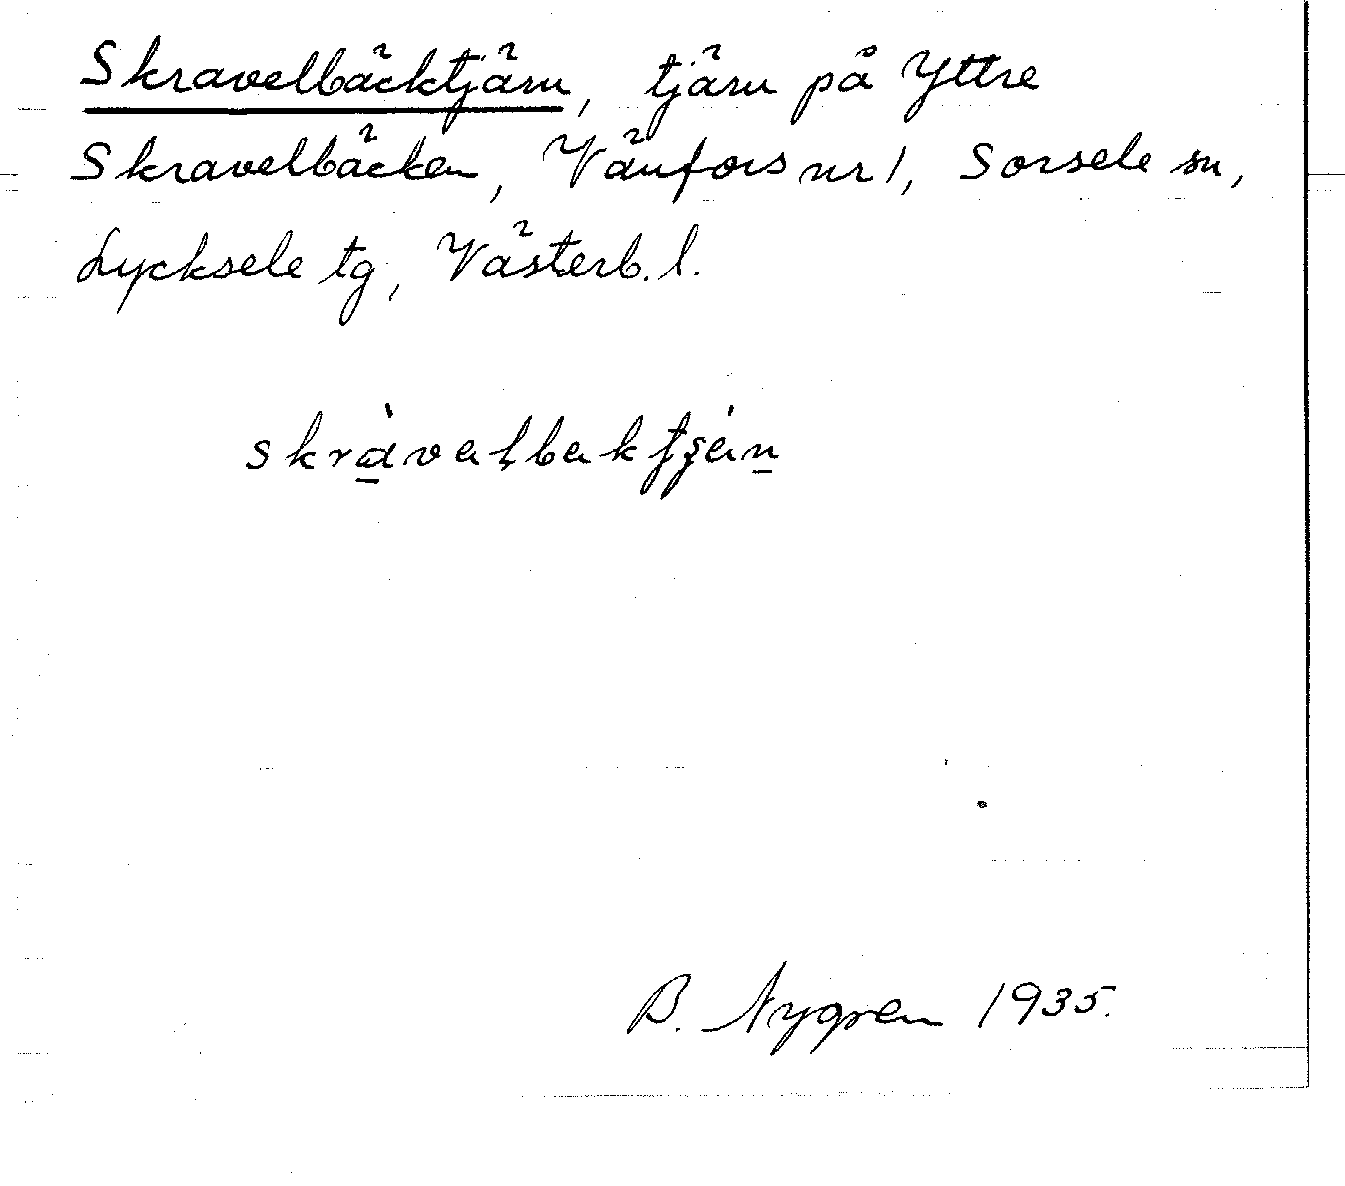 Skravelbäcktjärn, tjärn på Yttre
Skravelbäcken, Vänfors nr 1, Sorsele sn,
Lycksele tg, Västerb. l.
B. Nygren 1935.